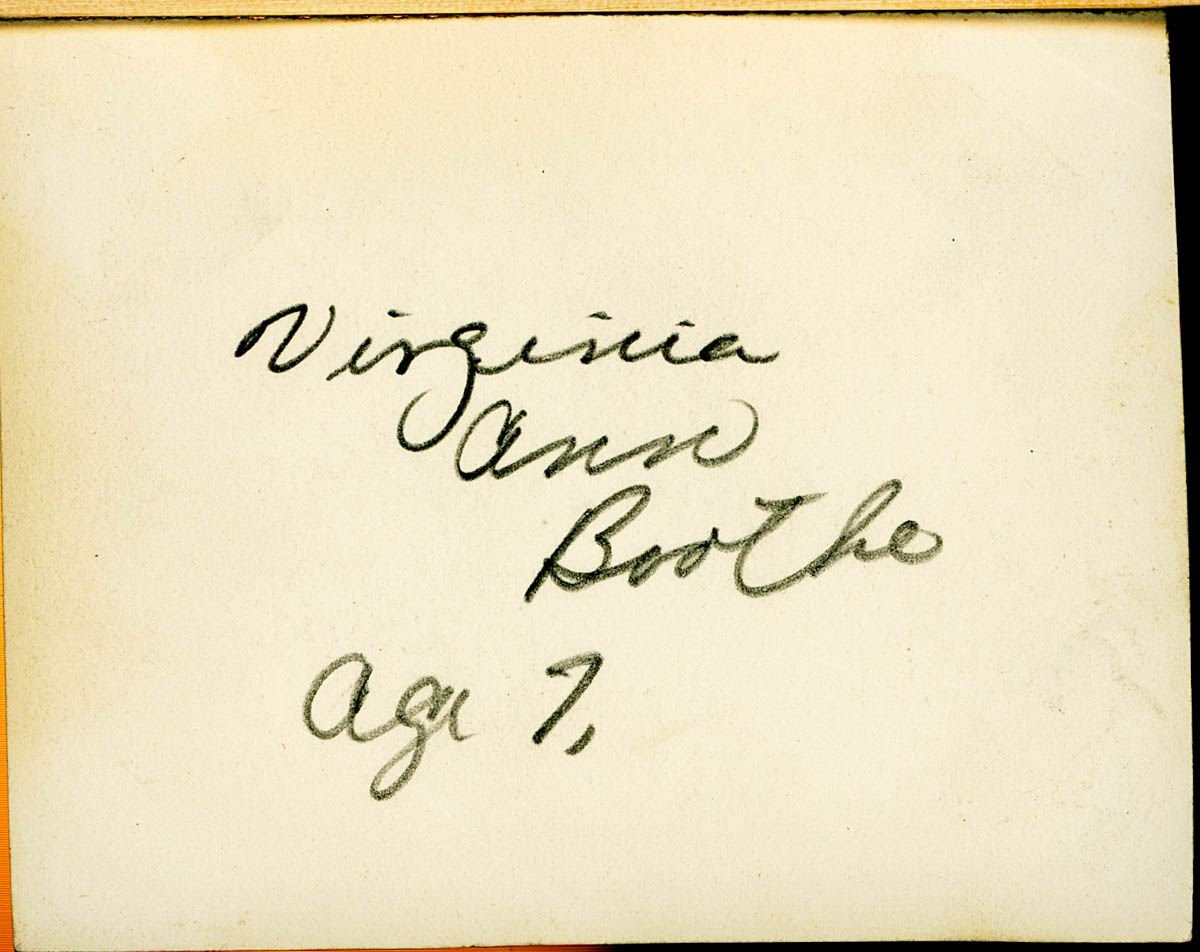 Virginia
Ann
Boothe
Age 7,